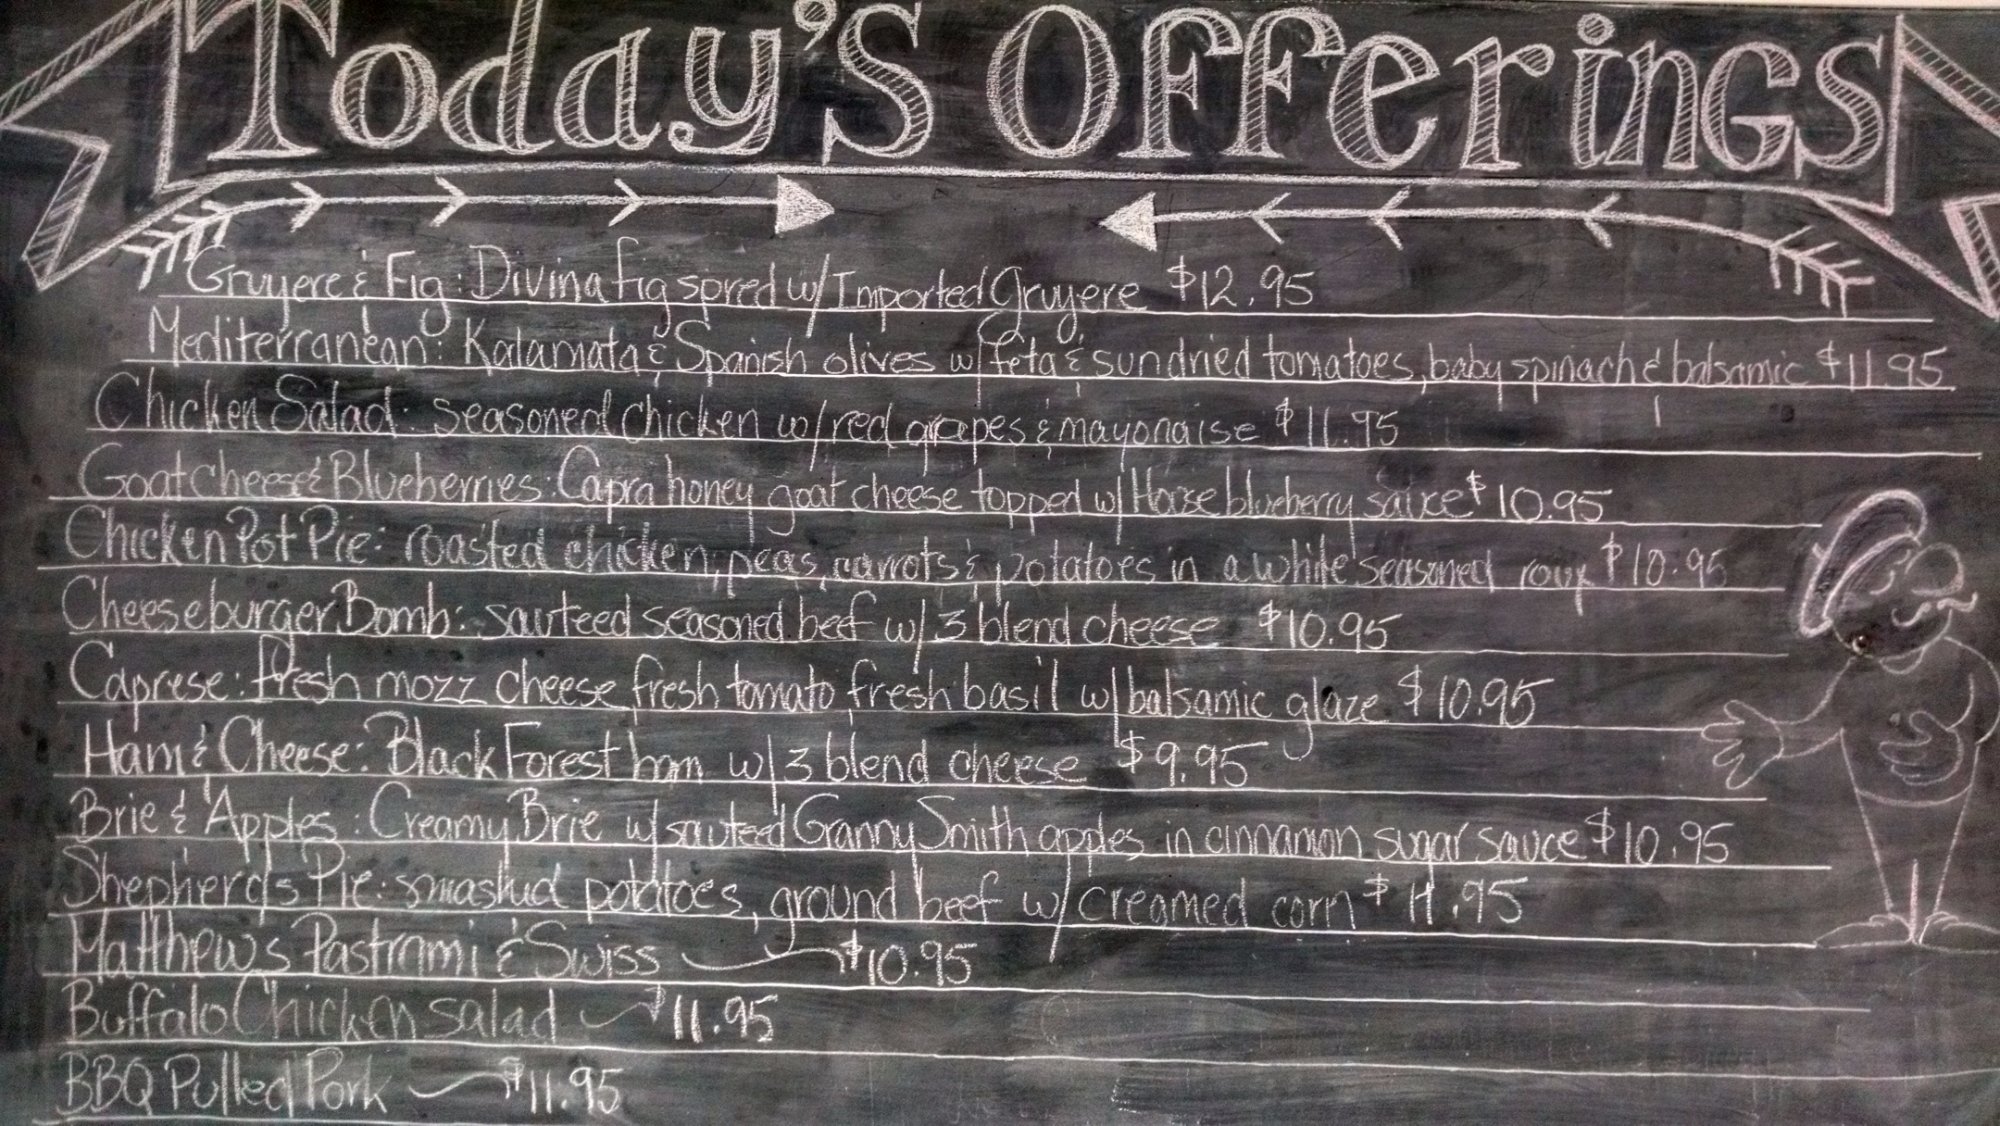 Today's Offerings
Gruyere & Fig: Divina fig spred w/ Imported Gruyere $12.95
Mediterranean: Kalamata & Spanish olives w/ feta & sundried tomatoes, baby spinach & balsamic $11.95
Chicken Salad: seasoned chicken w/ red grapes & mayonaise $11.95
Goat Cheese & Blueberries: Capra honey goat cheese topped w/ House blueberry sauce $10.95
Chicken Pot Pie: roasted chicken, peas, carrots & potatoes in a white seasoned roux $10.95
Cheeseburger Bomb: sauteed seasoned beef w/ 3 blend cheese $10.95
Caprese: fresh mozz cheese fresh tomato fresh basil w/ balsamic glaze $10.95
Ham & Cheese: Black Forest ham w/ 3 blend cheese $9.95
Brie & Apples: Creamy Brie w/ sauteed Granny Smith apples in cinnamon sugar sauce $10.95
Shepherds Pie: smashed potatoes, ground beef w/ creamed corn $11.95
Matthews Pastrami & Swiss $10.95
Buffalo Chicken salad $11.95
BBQ Pulled Pork $11.95